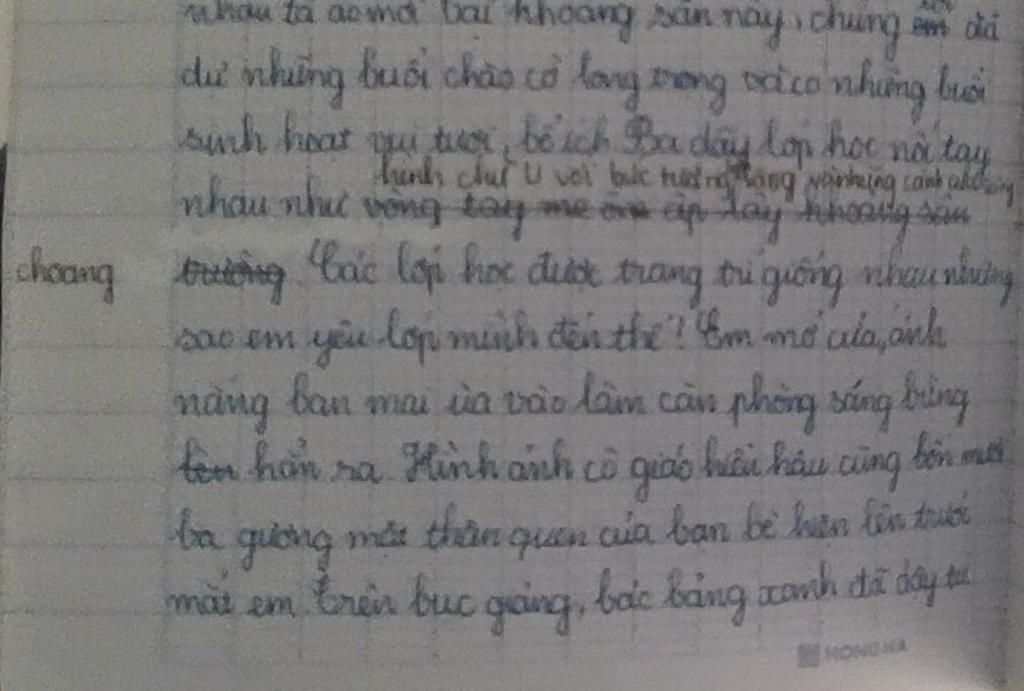 nhau tà áo mới bài khoảng sân này, chúng em đã
dự những buổi chào cờ long trọng và có những buổi
sinh hoạt vui tươi, bổ ích Ba dãy lớp học nối tay
hình chữ U với bức tường vàng và những cánh
nhau như vòng tay mẹ ôm ấp lấy khoảng sân
choang
trường Các lớp học được trang trí giống nhau nhưng
sao em yêu lớp mình đến thế! Em mở cửa, ánh
nắng ban mai ùa vào làm căn phòng sáng bừng
lên hẳn ra. Hình ảnh cô giáo hiền hậu cùng bốn mươi
ba gương mặt thân quen của bạn bè hiện lên trước
mắt em trên bục giảng, bác bảng xanh đã dậy từ
HONG HA